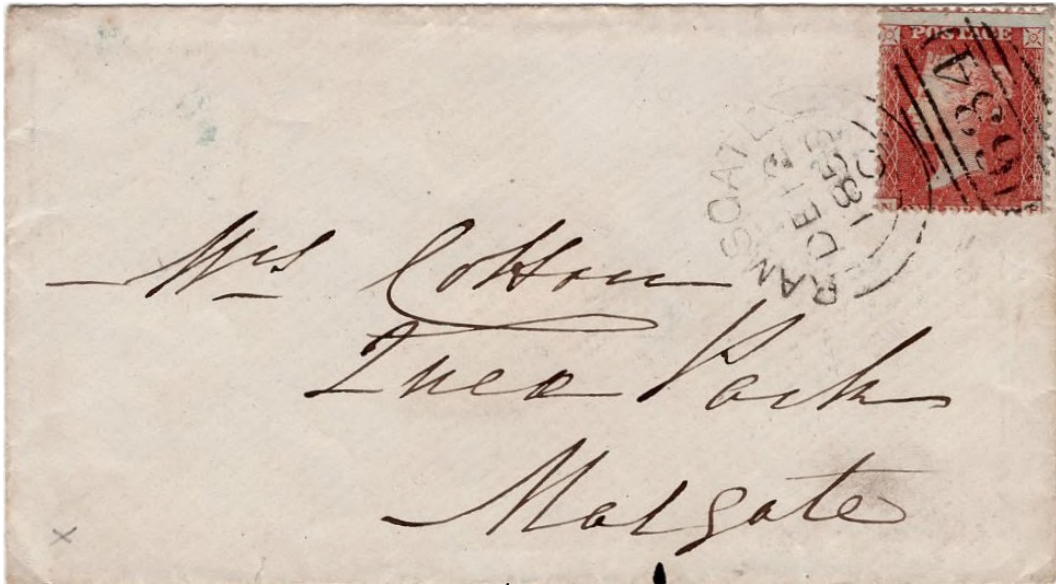 POSTAGE
634
RAMSGATE
DE 12
185
C
Mrs Cotton
Quex Park
Margate
x